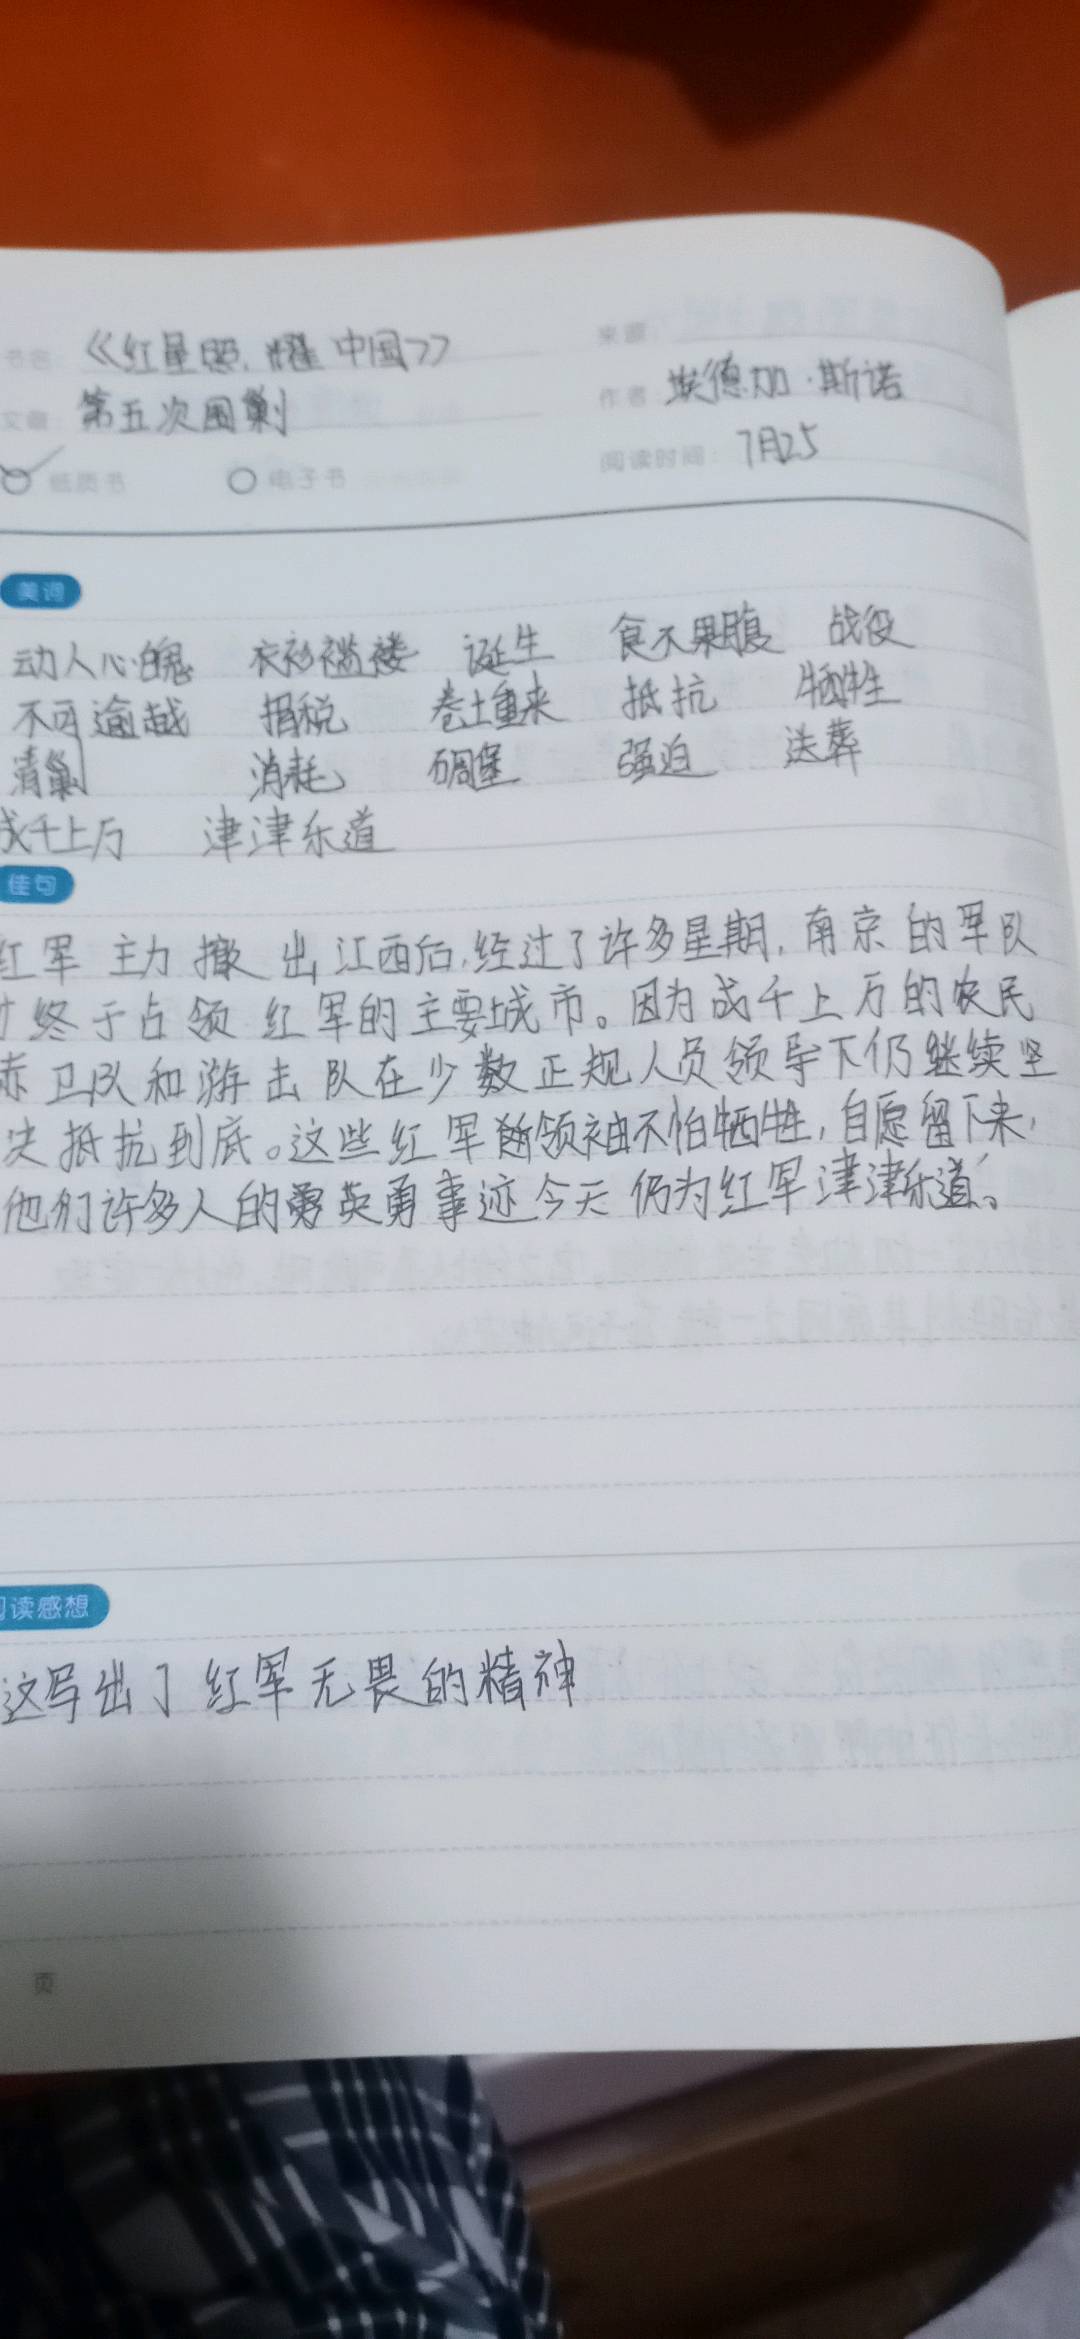 书名 《红星照耀中国》 来源
文章 第五次围剿 作者 埃德加·斯诺
纸质书 电子书 阅读时间: 7月25
美词
动人心魄 衣衫褴褛 诞生 食不果腹 战役
不可逾越 捐税 卷土重来 抵抗 牺牲
清剿 消耗 碉堡 强迫 送葬
成千上万 津津乐道
佳句
红军主力撤出江西后,经过了许多星期,南京的军队
才终于占领红军的主要城市。因为成千上万的农民
赤卫队和游击队在少数正规人员领导下仍继续坚
决抵抗到底。这些红军领袖不怕牺牲,自愿留下来,
他们许多人的英勇事迹今天仍为红军津津乐道。
阅读感想
这写出了红军无畏的精神
页